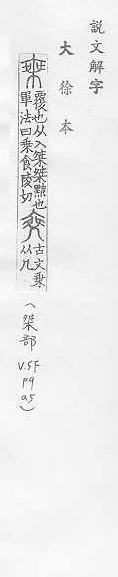 說文解字
大徐本
椉
覆也从入桀桀黠也
軍法曰乘食陵切
古文乘
从几
(桀部
V.5F
P9
a5)